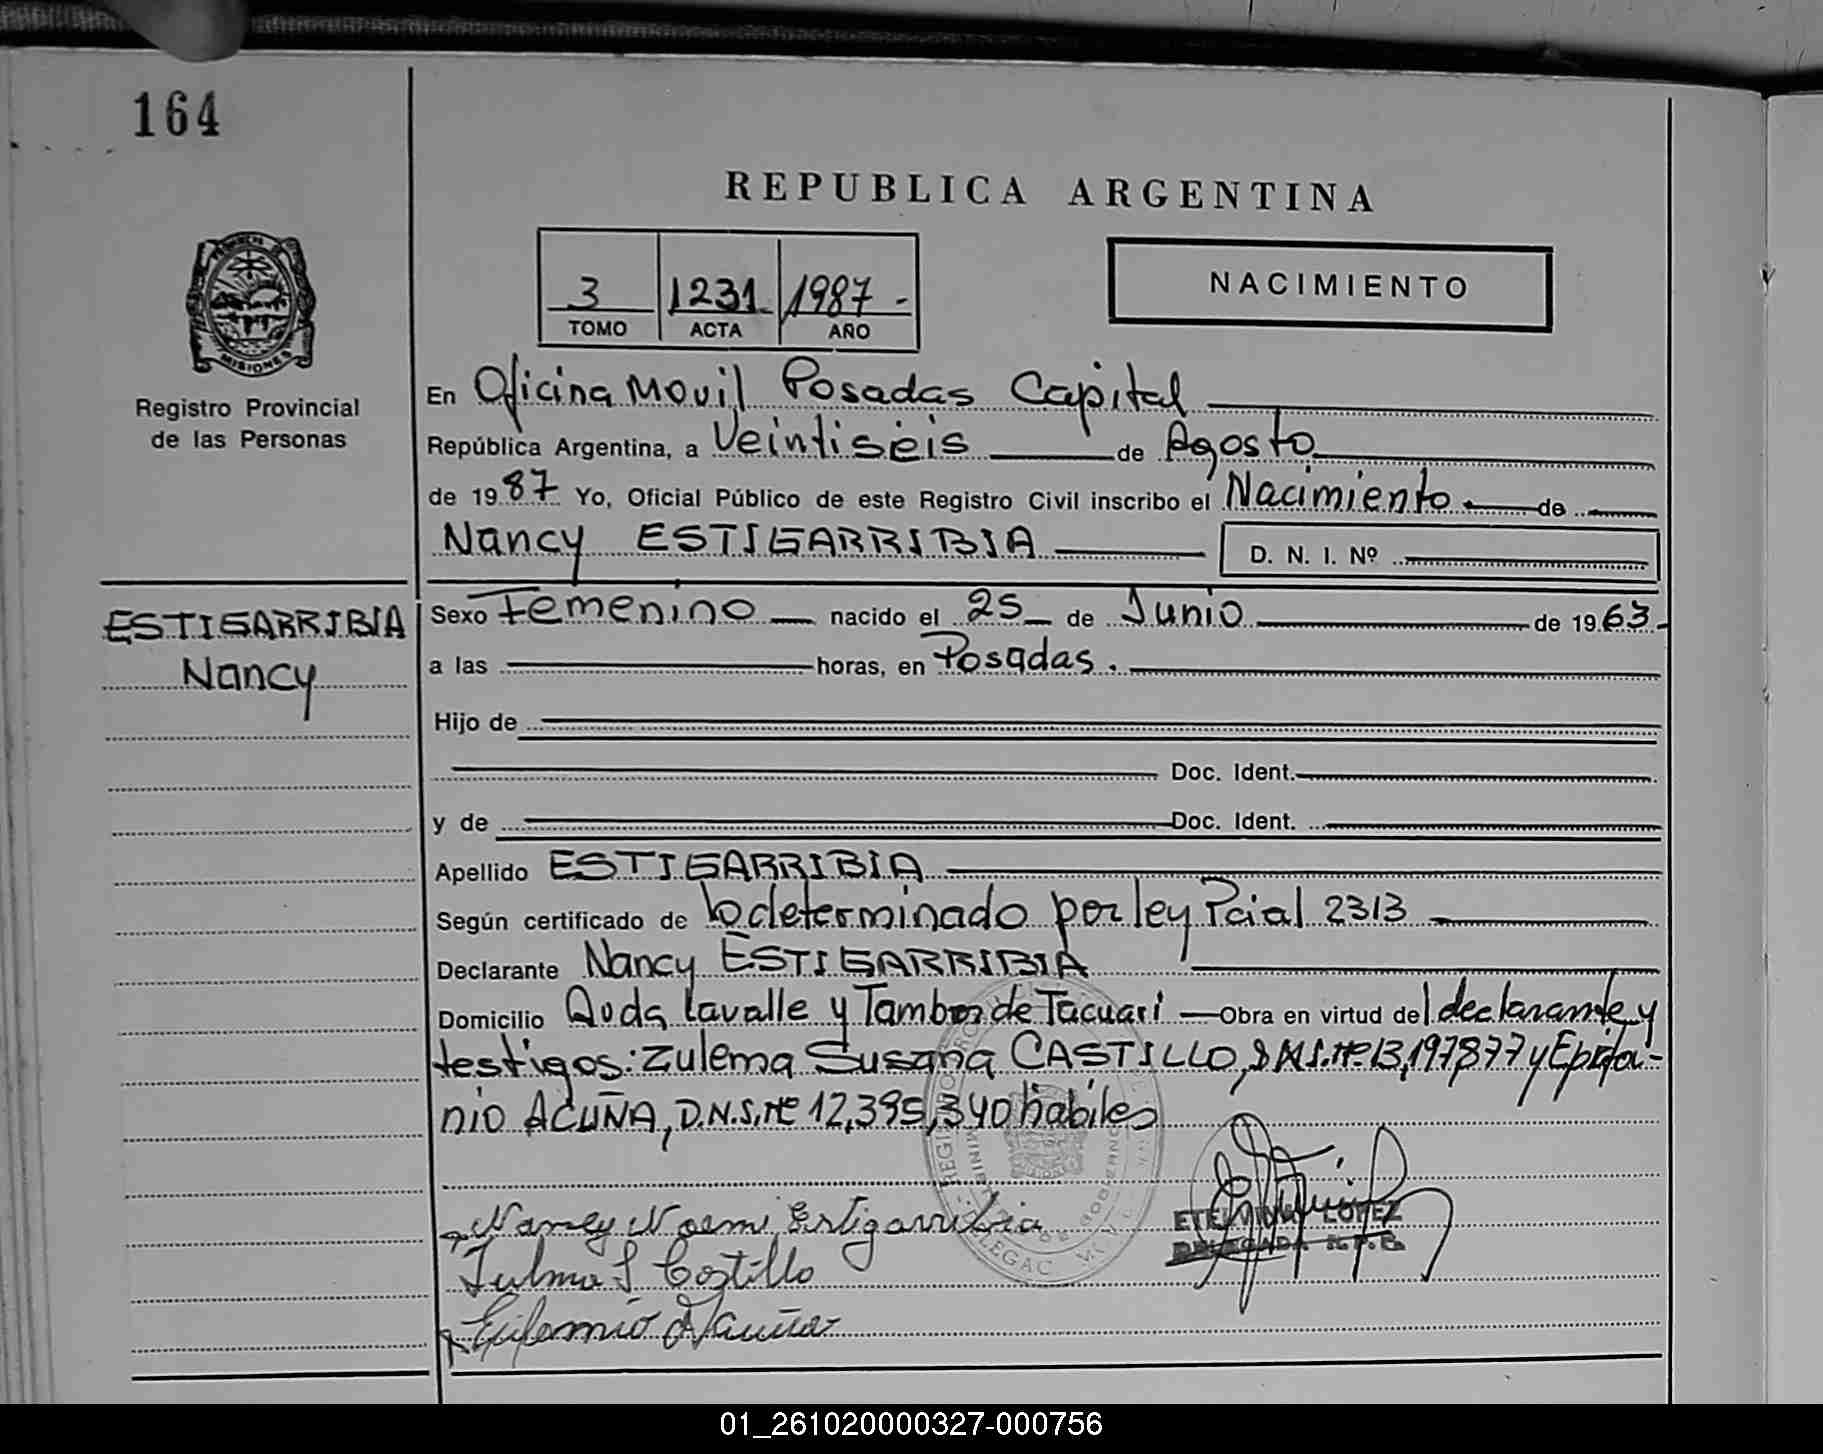 164
REPUBLICA ARGENTINA
3 1231 1987
TOMO ACTA AÑO
NACIMIENTO
MISIONES
Registro Provincial
de las Personas
En Oficina Movil Posadas Capital
República Argentina, a Veintiseis de Agosto
de 1987 Yo, Oficial Público de este Registro Civil inscribo el Nacimiento de
Nancy ESTIGARRIBIA D. N. I. Nº
ESTIGARRIBIA
Nancy
Sexo Femenino nacido el 25 de Junio de 1963
a las horas, en Posadas.
Hijo de
Doc. Ident.
y de Doc. Ident.
Apellido ESTIGARRIBIA
Según certificado de lo determinado por ley Pcial 2313
Declarante Nancy ESTIGARRIBIA
Domicilio Avda Lavalle y Tambor de Tacuari Obra en virtud del declarante y
testigos: Zulema Susana CASTILLO, D.N.I. Nº 13,197,877 y
nio ACUÑA, D.N.I. Nº 12,395,340 habiles
Nancy Noemi Estigarribia
S Castillo
Acuña
ETELVINA LOPEZ
DELEGADA R.P.P.
01_261020000327-000756